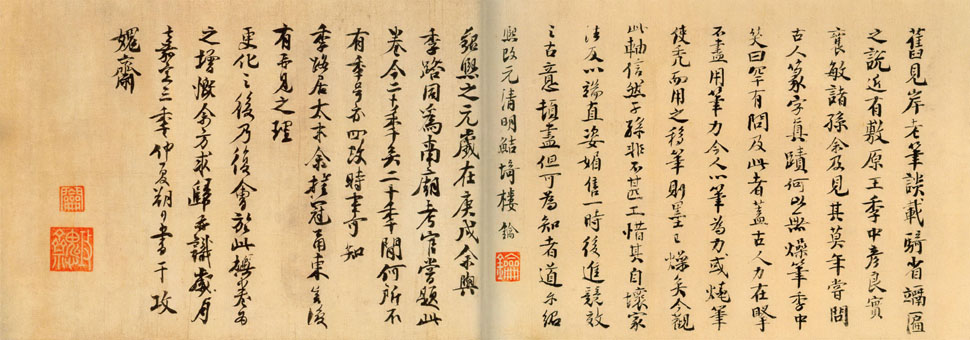 舊見岸老筆談載騎省竵匾
之說近有敷原王季中彥良實
襄敏諸孫余及見其莫年嘗問
古人篆字真蹟何以無燥筆季中
笑曰罕有問及此者蓋古人力在掔
不盡用筆力今人以筆為力或燒筆
使禿而用之移筆則墨已燥矣今觀
此軸信然子孫非不甚工惜其自壞家
法反以端直姿媚售一時後進競效
之古意頓盡但可為知者道尔紹
熙改元清明鮚埼樓鑰
鑰
紹熙之元歲在庚戌余與
季路同為南廟考官嘗題此
卷今二十年矣二十年間何所不
有年号亦四改時事可知
季路居太末余挂冠甬東豈復
有再見之理
更化之後乃復會於此撫卷為
之增慨余方求歸再識歲月
嘉定三年仲夏朔日書于攻
媿齋